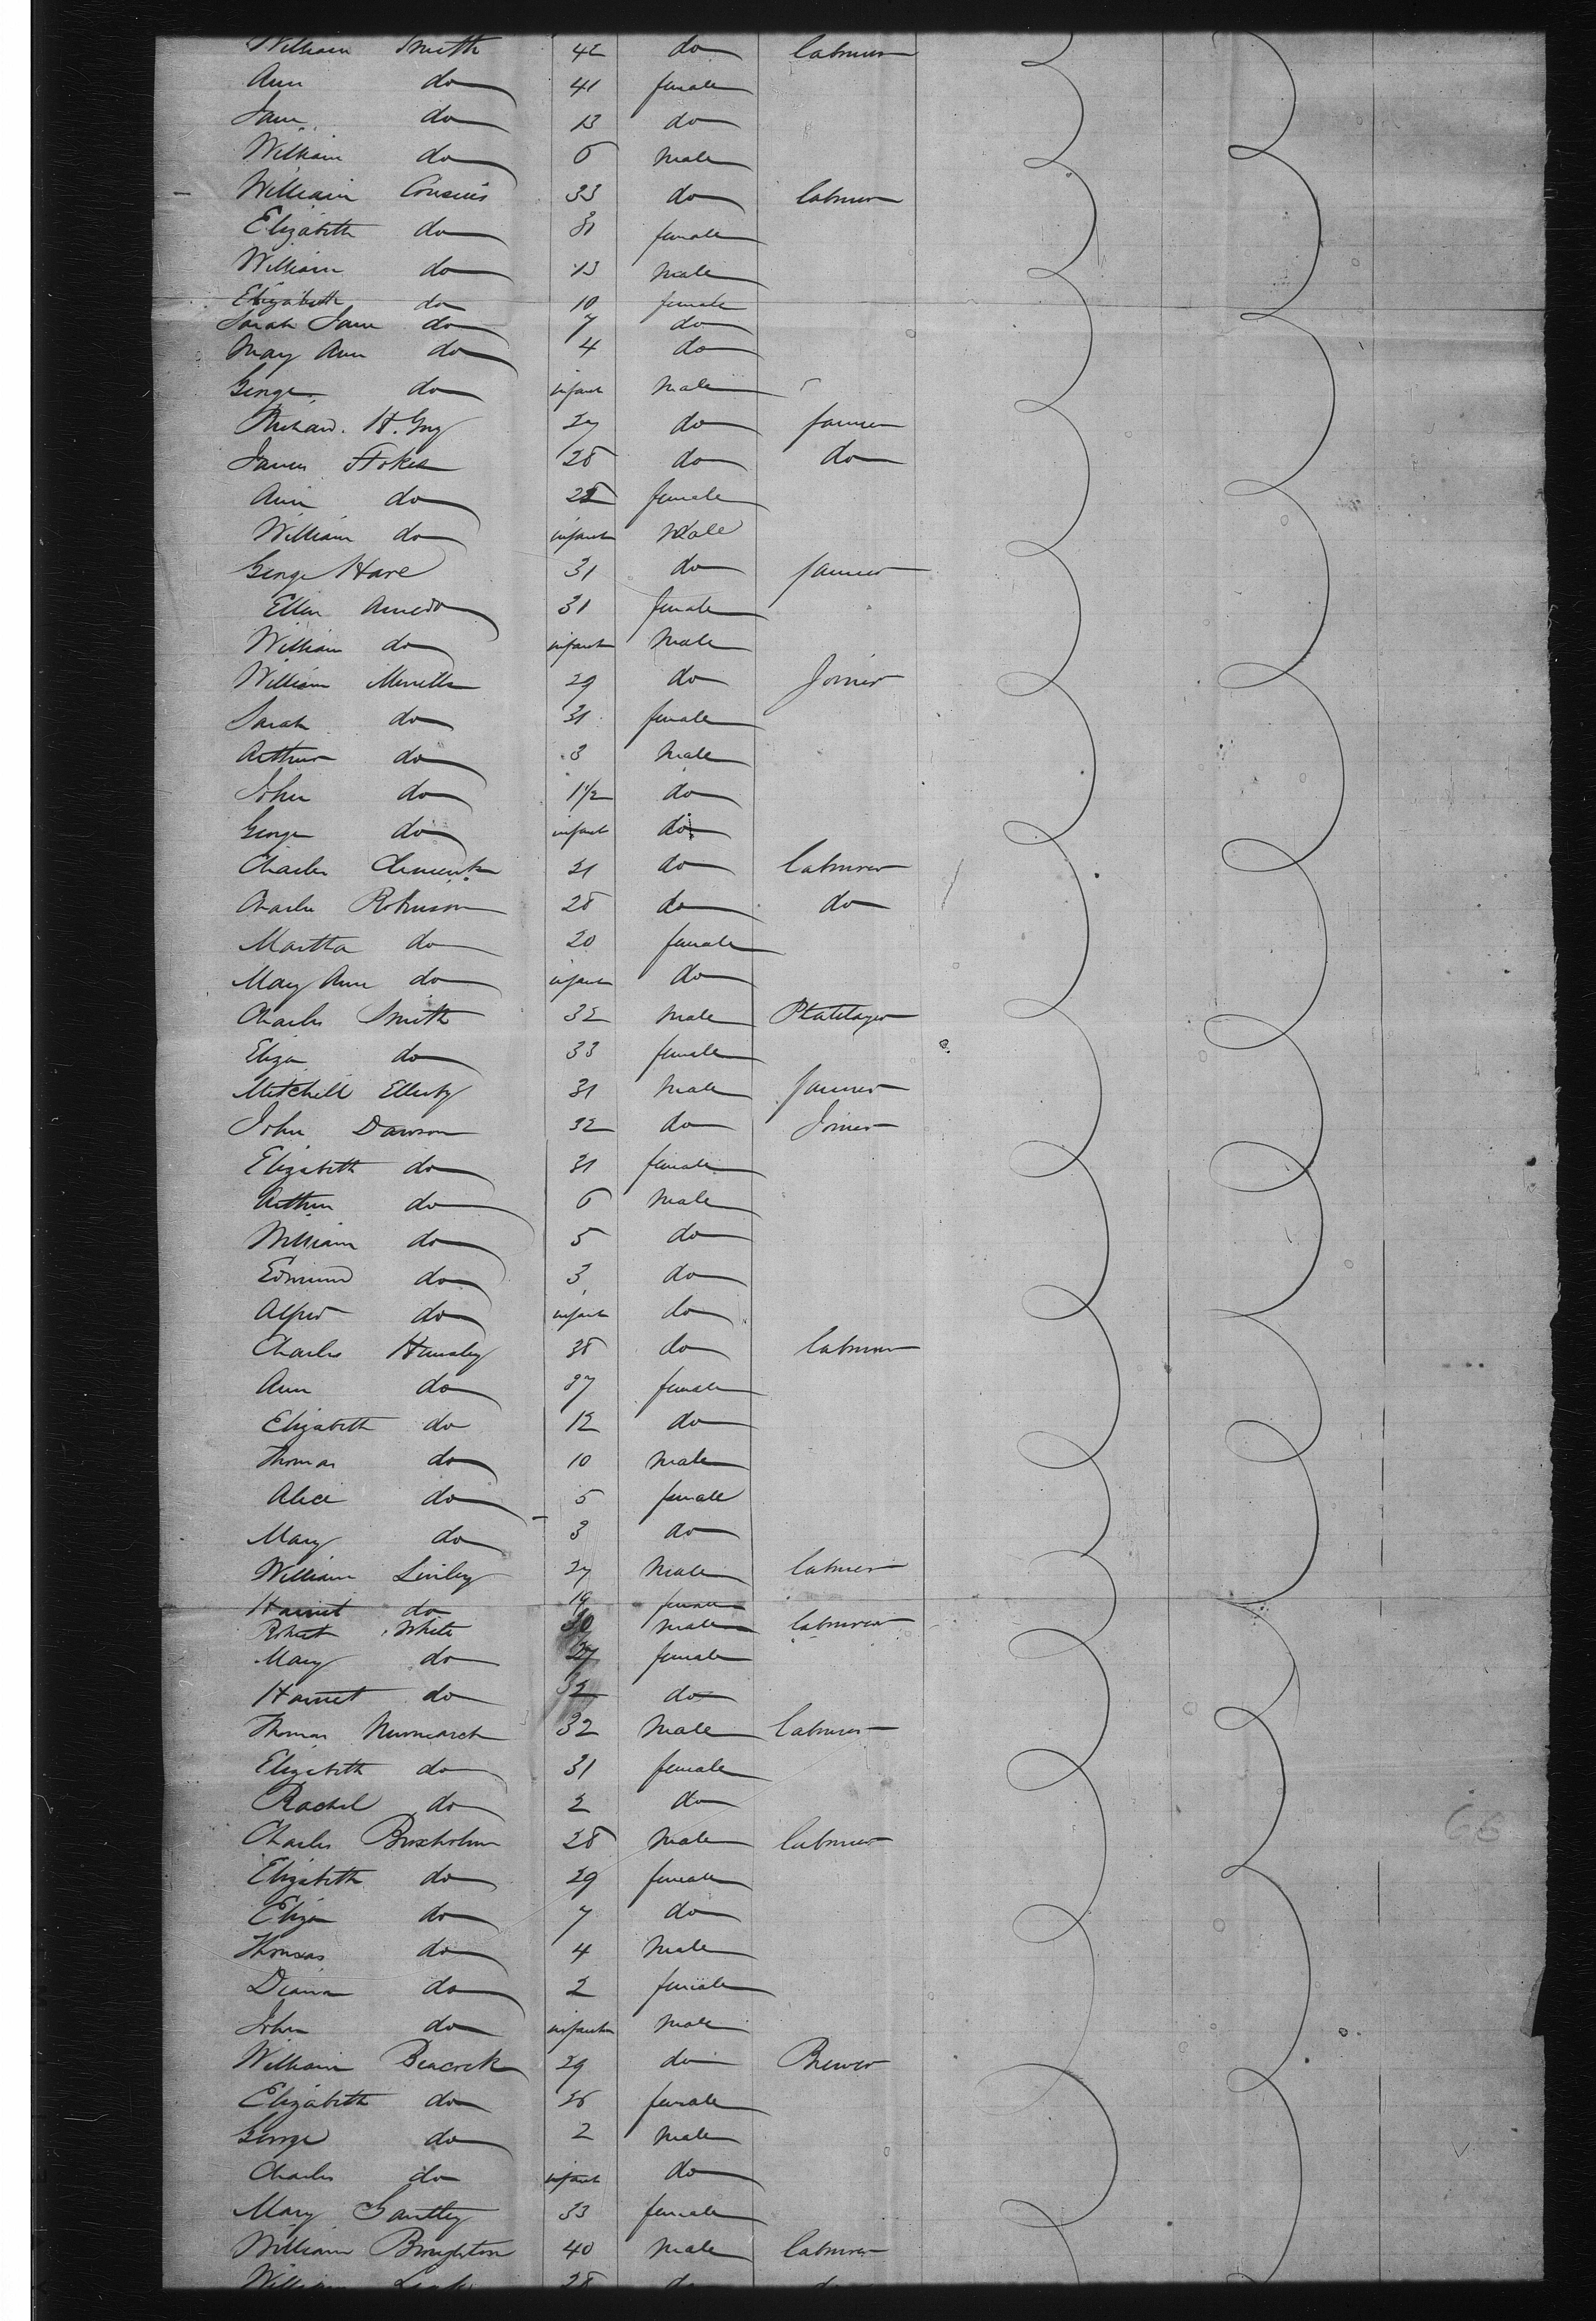 William Smith 42 do labourer
Ann do 41 female
Jane do 13 do
William do 6 male
William Cousins 33 do labourer
Elizabeth do 31 female
William do 13 male
Elizabeth do 10 female
Sarah Jane do 7 do
Mary Ann do 4 do
George do infant male
Richard H. Gry 27 do farmer
James Stokes 28 do do
Ann do female
William do infant Male
George Hare 31 do farmer
Ellen 31 female
William do infant male
William 29 do Joiner
Sarah do 31 female
Arthur do 3 male
John do 1 1/2 do
George do infant do
Charles Clements 21 do labourer
Charles Robinson 28 do do
Martha do 20 female
Mary Ann do infant do
Charles Smith 32 male Platelayer
Eliza do 33 female
Mitchell Ellerby 31 male farmer
John Dawson 32 do Joiner
Elizabeth do 31 female
Arthur do 6 male
William do 5 do
Edmund do 3 do
Alfred do infant do
Charles 38 do labourer
Ann do 37 female
Elizabeth do 12 do
Thomas do 10 male
Alice do 5 female
Mary do 3 do
William Linley 27 male labourer
Harriet do 19 female
Robert White 30 male labourer
Mary do 27 female
Harriet do do
Thomas Newmarch 32 male labourer
Elizabeth do 31 female
Rachel do 2 do
Charles Broxholm 28 male labourer
Elizabeth do 29 female
Eliza do 7 do
Thomas do 4 male
Diana do 2 female
John do infant male
William Peacock 29 do Brewer
Elizabeth do 26 female
George do 2 male
Charles do infant do
Mary 33 female
William Broughton 40 male labourer
William 28 do do